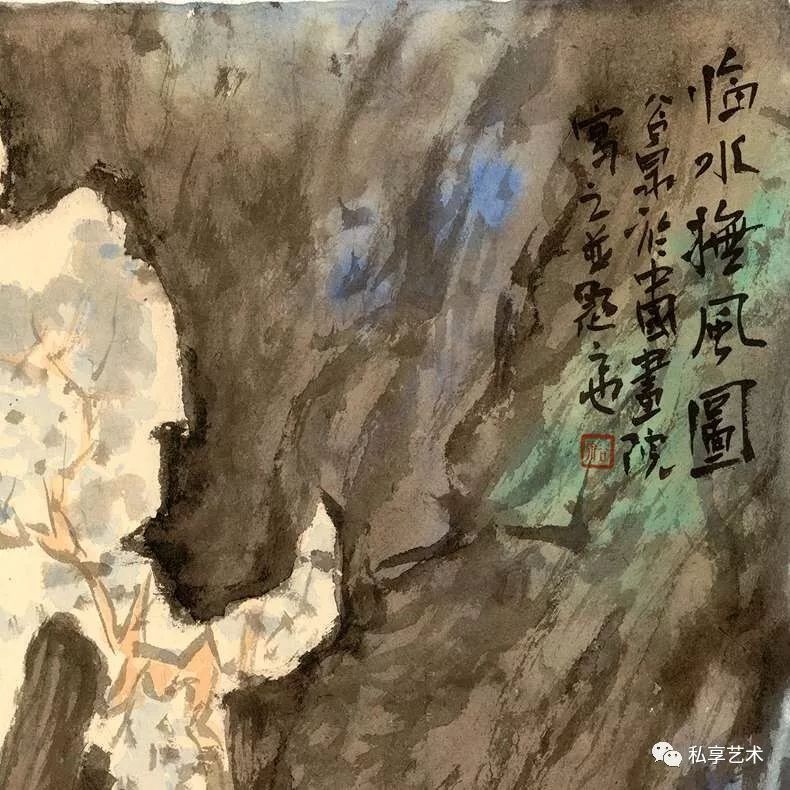 临水撫風圖
谷泉於中國畫院
寫之並題
私享艺术